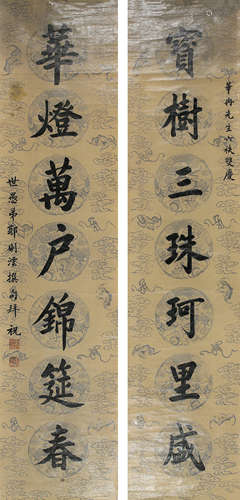 華冉先生六秩雙慶
寶樹三珠珂里盛
華燈萬戶錦筵春
世愚弟郭則澐撰句拜祝